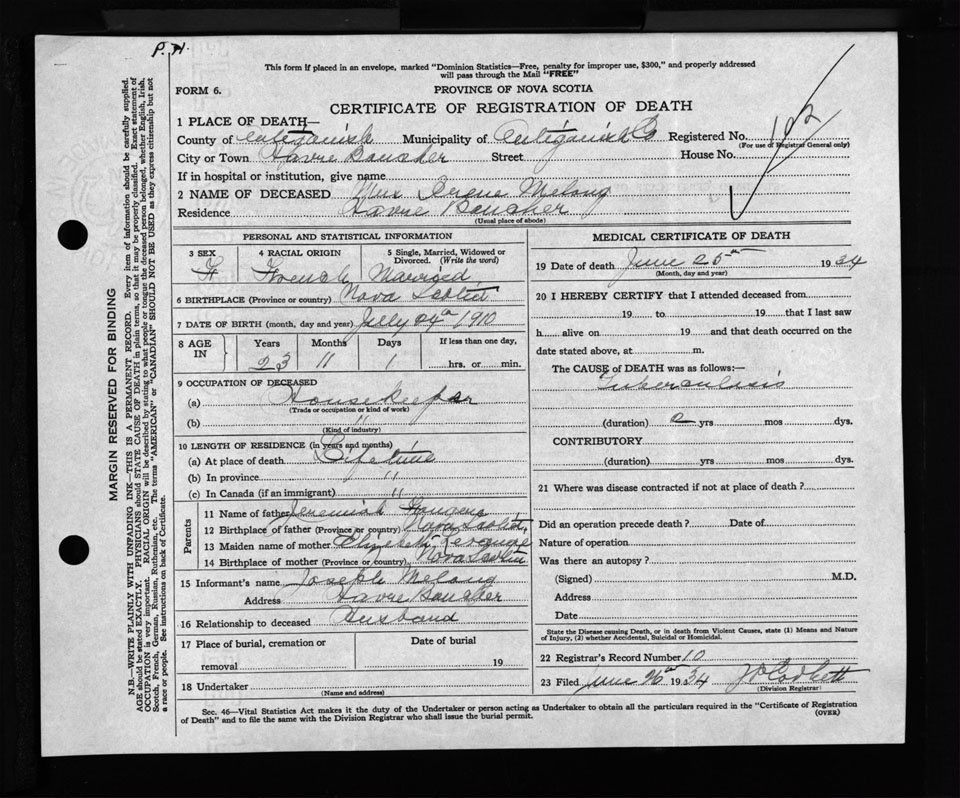 P. H.
This form if placed in an envelope, marked "Dominion Statistics—Free, penalty for improper use, $300," and properly addressed
will pass through the Mail "FREE"
FORM 6.
PROVINCE OF NOVA SCOTIA
CERTIFICATE OF REGISTRATION OF DEATH
1 PLACE OF DEATH—
County of Antiganish Municipality of Antiganish Co Registered No. 102
(For use of Registrar General only)
City or Town Havre Baucher Street House No.
If in hospital or institution, give name
2 NAME OF DECEASED Mrs Irene Melong
Residence Havre Baucher
(Usual place of abode)
PERSONAL AND STATISTICAL INFORMATION
3 SEX 4 RACIAL ORIGIN 5 Single, Married, Widowed or Divorced. (Write the word)
F French Married
6 BIRTHPLACE (Province or country) Nova Scotia
7 DATE OF BIRTH (month, day and year) July 24th 1910
8 AGE IN Years Months Days If less than one day,
23 11 1 hrs. or min.
9 OCCUPATION OF DECEASED
(a) Housekeeper
(Trade or occupation or kind of work)
(b) "
(Kind of industry)
10 LENGTH OF RESIDENCE (in years and months)
(a) At place of death Lifetime
(b) In province "
(c) In Canada (if an immigrant) "
Parents
11 Name of father Jeremiah
12 Birthplace of father (Province or country) Nova Scotia
13 Maiden name of mother Elizabeth
14 Birthplace of mother (Province or country) Nova Scotia
15 Informant's name Joseph Melong
Address Havre Baucher
16 Relationship to deceased Husband
17 Place of burial, cremation or Date of burial
removal 19
18 Undertaker
(Name and address)
MEDICAL CERTIFICATE OF DEATH
19 Date of death June 25th 1934
(Month, day and year)
20 I HEREBY CERTIFY that I attended deceased from
19 to 19 that I last saw
h alive on 19 and that death occurred on the
date stated above, at m.
The CAUSE of DEATH was as follows:—
Tuberculosis
(duration) 2 yrs mos dys.
CONTRIBUTORY
(duration) yrs mos dys.
21 Where was disease contracted if not at place of death?
Did an operation precede death? Date of
Nature of operation
Was there an autopsy?
(Signed) M.D.
Address
Date
State the Disease causing Death, or in death from Violent Causes, state (1) Means and Nature
of Injury, (2) whether Accidental, Suicidal or Homicidal.
22 Registrar's Record Number 10
23 Filed June 26th 1934
(Division Registrar)
Sec. 46—Vital Statistics Act makes it the duty of the Undertaker or person acting as Undertaker to obtain all the particulars required in the "Certificate of Registration
of Death" and to file the same with the Division Registrar who shall issue the burial permit.
(OVER)
MARGIN RESERVED FOR BINDING
N.B.—WRITE PLAINLY WITH UNFADING INK—THIS IS A PERMANENT RECORD. Every item of information should be carefully supplied.
AGE should be stated EXACTLY. PHYSICIANS should STATE CAUSE OF DEATH in plain terms, so that it may be properly classified. Exact statement of
OCCUPATION is very important. RACIAL ORIGIN will be described by stating to what people or tongue the deceased person belonged, whether English, Irish,
Scotch, French, German, Russian, Ruthenian, etc. The terms "AMERICAN" or "CANADIAN" SHOULD NOT BE USED as they express citizenship but not
a race or people. See instructions on back of Certificate.